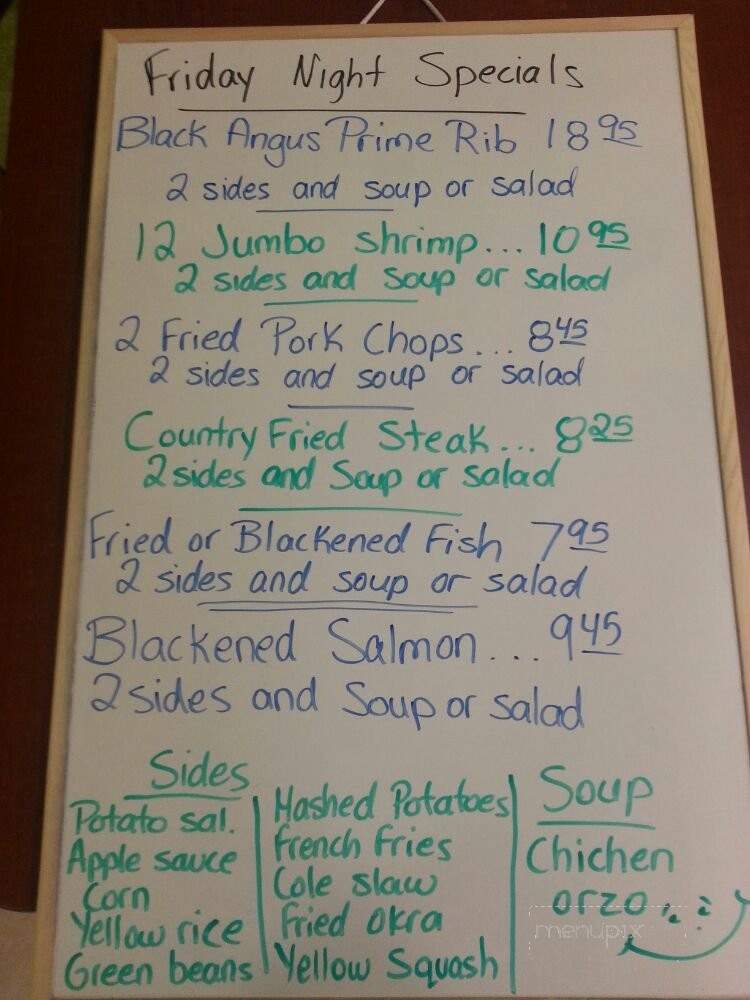 Friday Night Specials
Black Angus Prime Rib 18 95
2 sides and soup or salad
12 Jumbo shrimp... 10 95
2 sides and soup or salad
2 Fried Pork Chops... 8 45
2 sides and soup or salad
Country Fried Steak... 8 25
2 sides and Soup or salad
Fried or Blackened Fish 7 95
2 sides and soup or salad
Blackened Salmon... 9 45
2 sides and Soup or salad
Sides
Potato sal.
Apple sauce
Corn
Yellow rice
Green beans
Mashed Potatoes
French Fries
Cole slaw
Fried Okra
Yellow Squash
Soup
Chichen
orzo
menupix